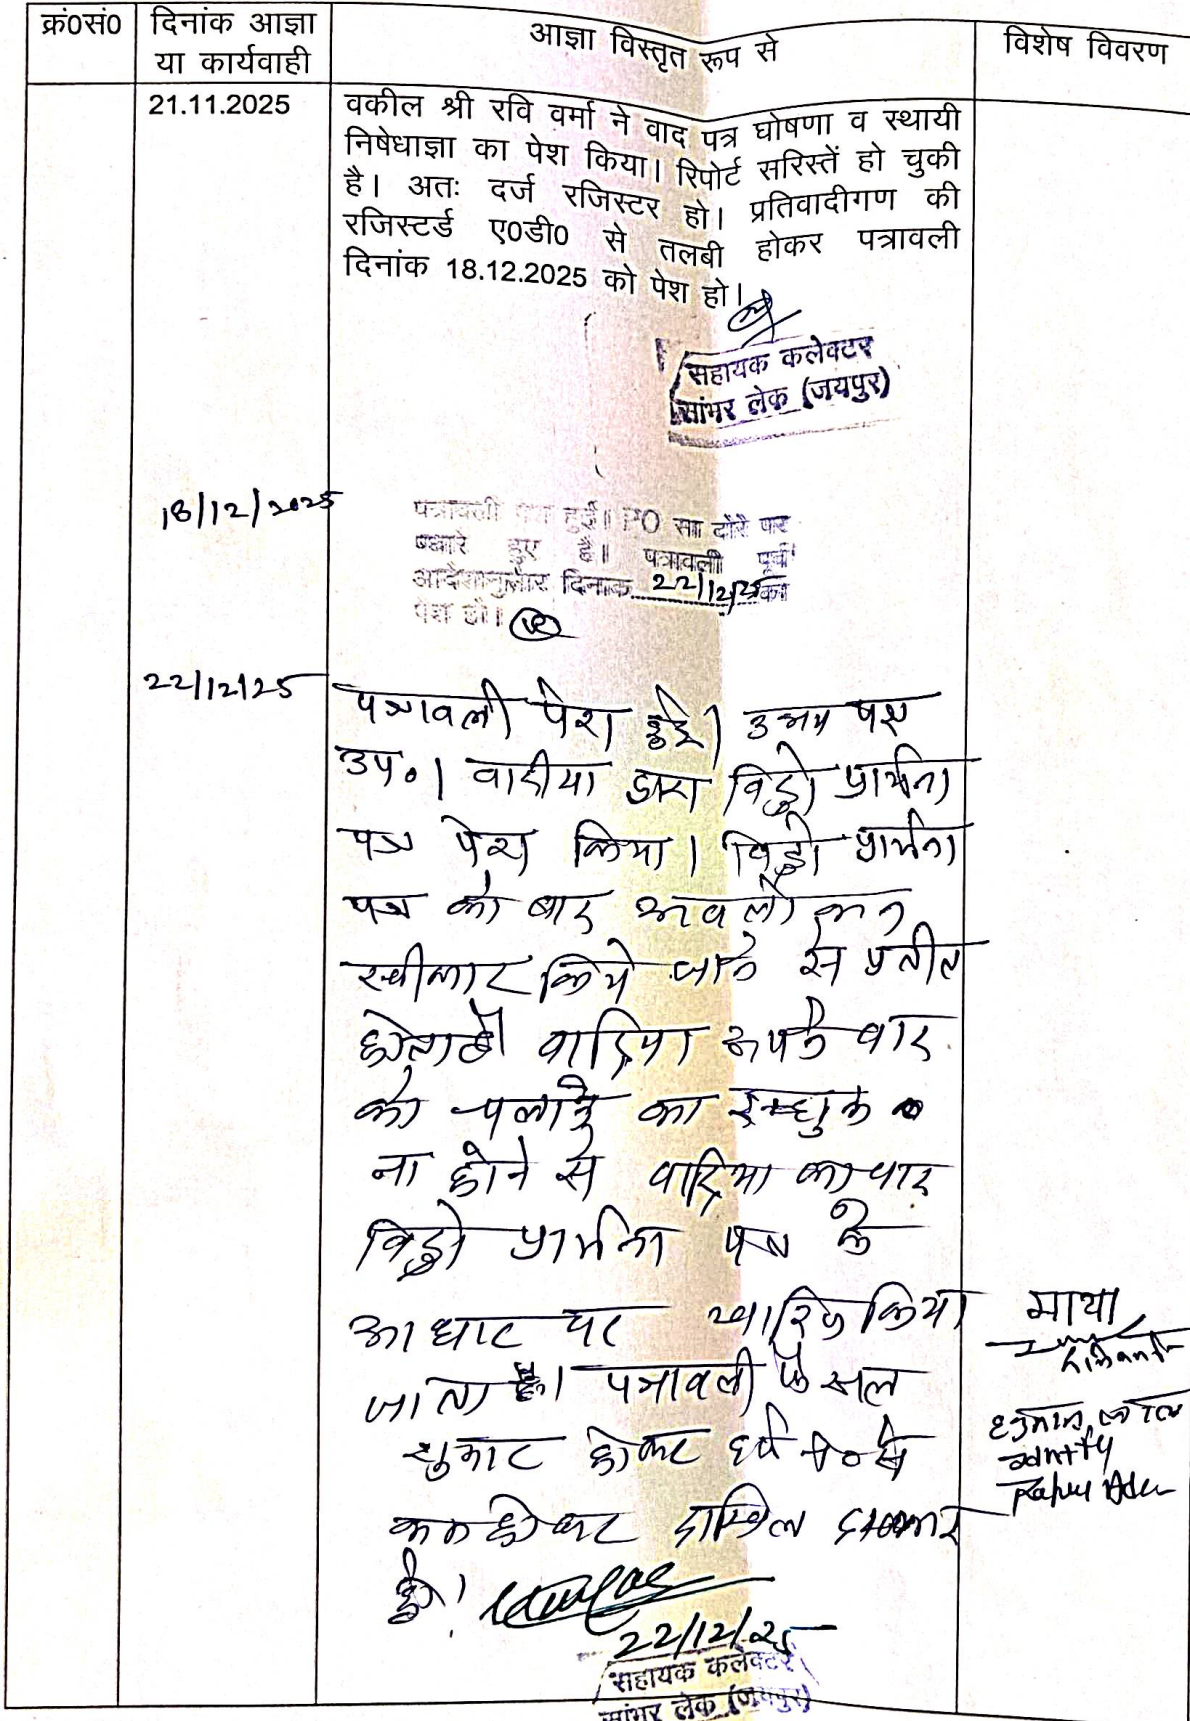 क्रं0सं0
दिनांक आज्ञा
या कार्यवाही
आज्ञा विस्तृत रूप से
विशेष विवरण
21.11.2025
वकील श्री रवि वर्मा ने वाद पत्र घोषणा व स्थायी
निषेधाज्ञा का पेश किया। रिपोर्ट सरिस्तें हो चुकी
है। अतः दर्ज रजिस्टर हो। प्रतिवादीगण की
रजिस्टर्ड ए0डी0 से तलबी होकर पत्रावली
दिनांक 18.12.2025 को पेश हो।
सहायक कलेक्टर
सांभर लेक (जयपुर)
18/12/2025
पत्रावली पेश हुई। PO सा दौरे पर
पधारे हुए है। पत्रावली पूर्व
आदेशानुसार दिनांक 22/12/25 को
पेश हो।
22/12/25
पत्रावली पेश हुई। उभय पक्ष
उप०। वादीया द्वारा विड्रो प्रार्थना
पत्र पेश किया। विड्रो प्रार्थना
पत्र को बाद अवलोकन
स्वीकार किये जाने से प्रतीत
होता है वादिया अपने वाद
को चलाने का इच्छुक
ना होने से वादिया का वाद
विड्रो प्रार्थना पत्र के
आधार पर खारिज किया
जाता है। पत्रावली फैसल
शुमार होकर दर्ज न० से
कम होकर दाखिल दफ्तर
हो।
22/12/25
सहायक कलेक्टर
सांभर लेक (जयपुर)
माया